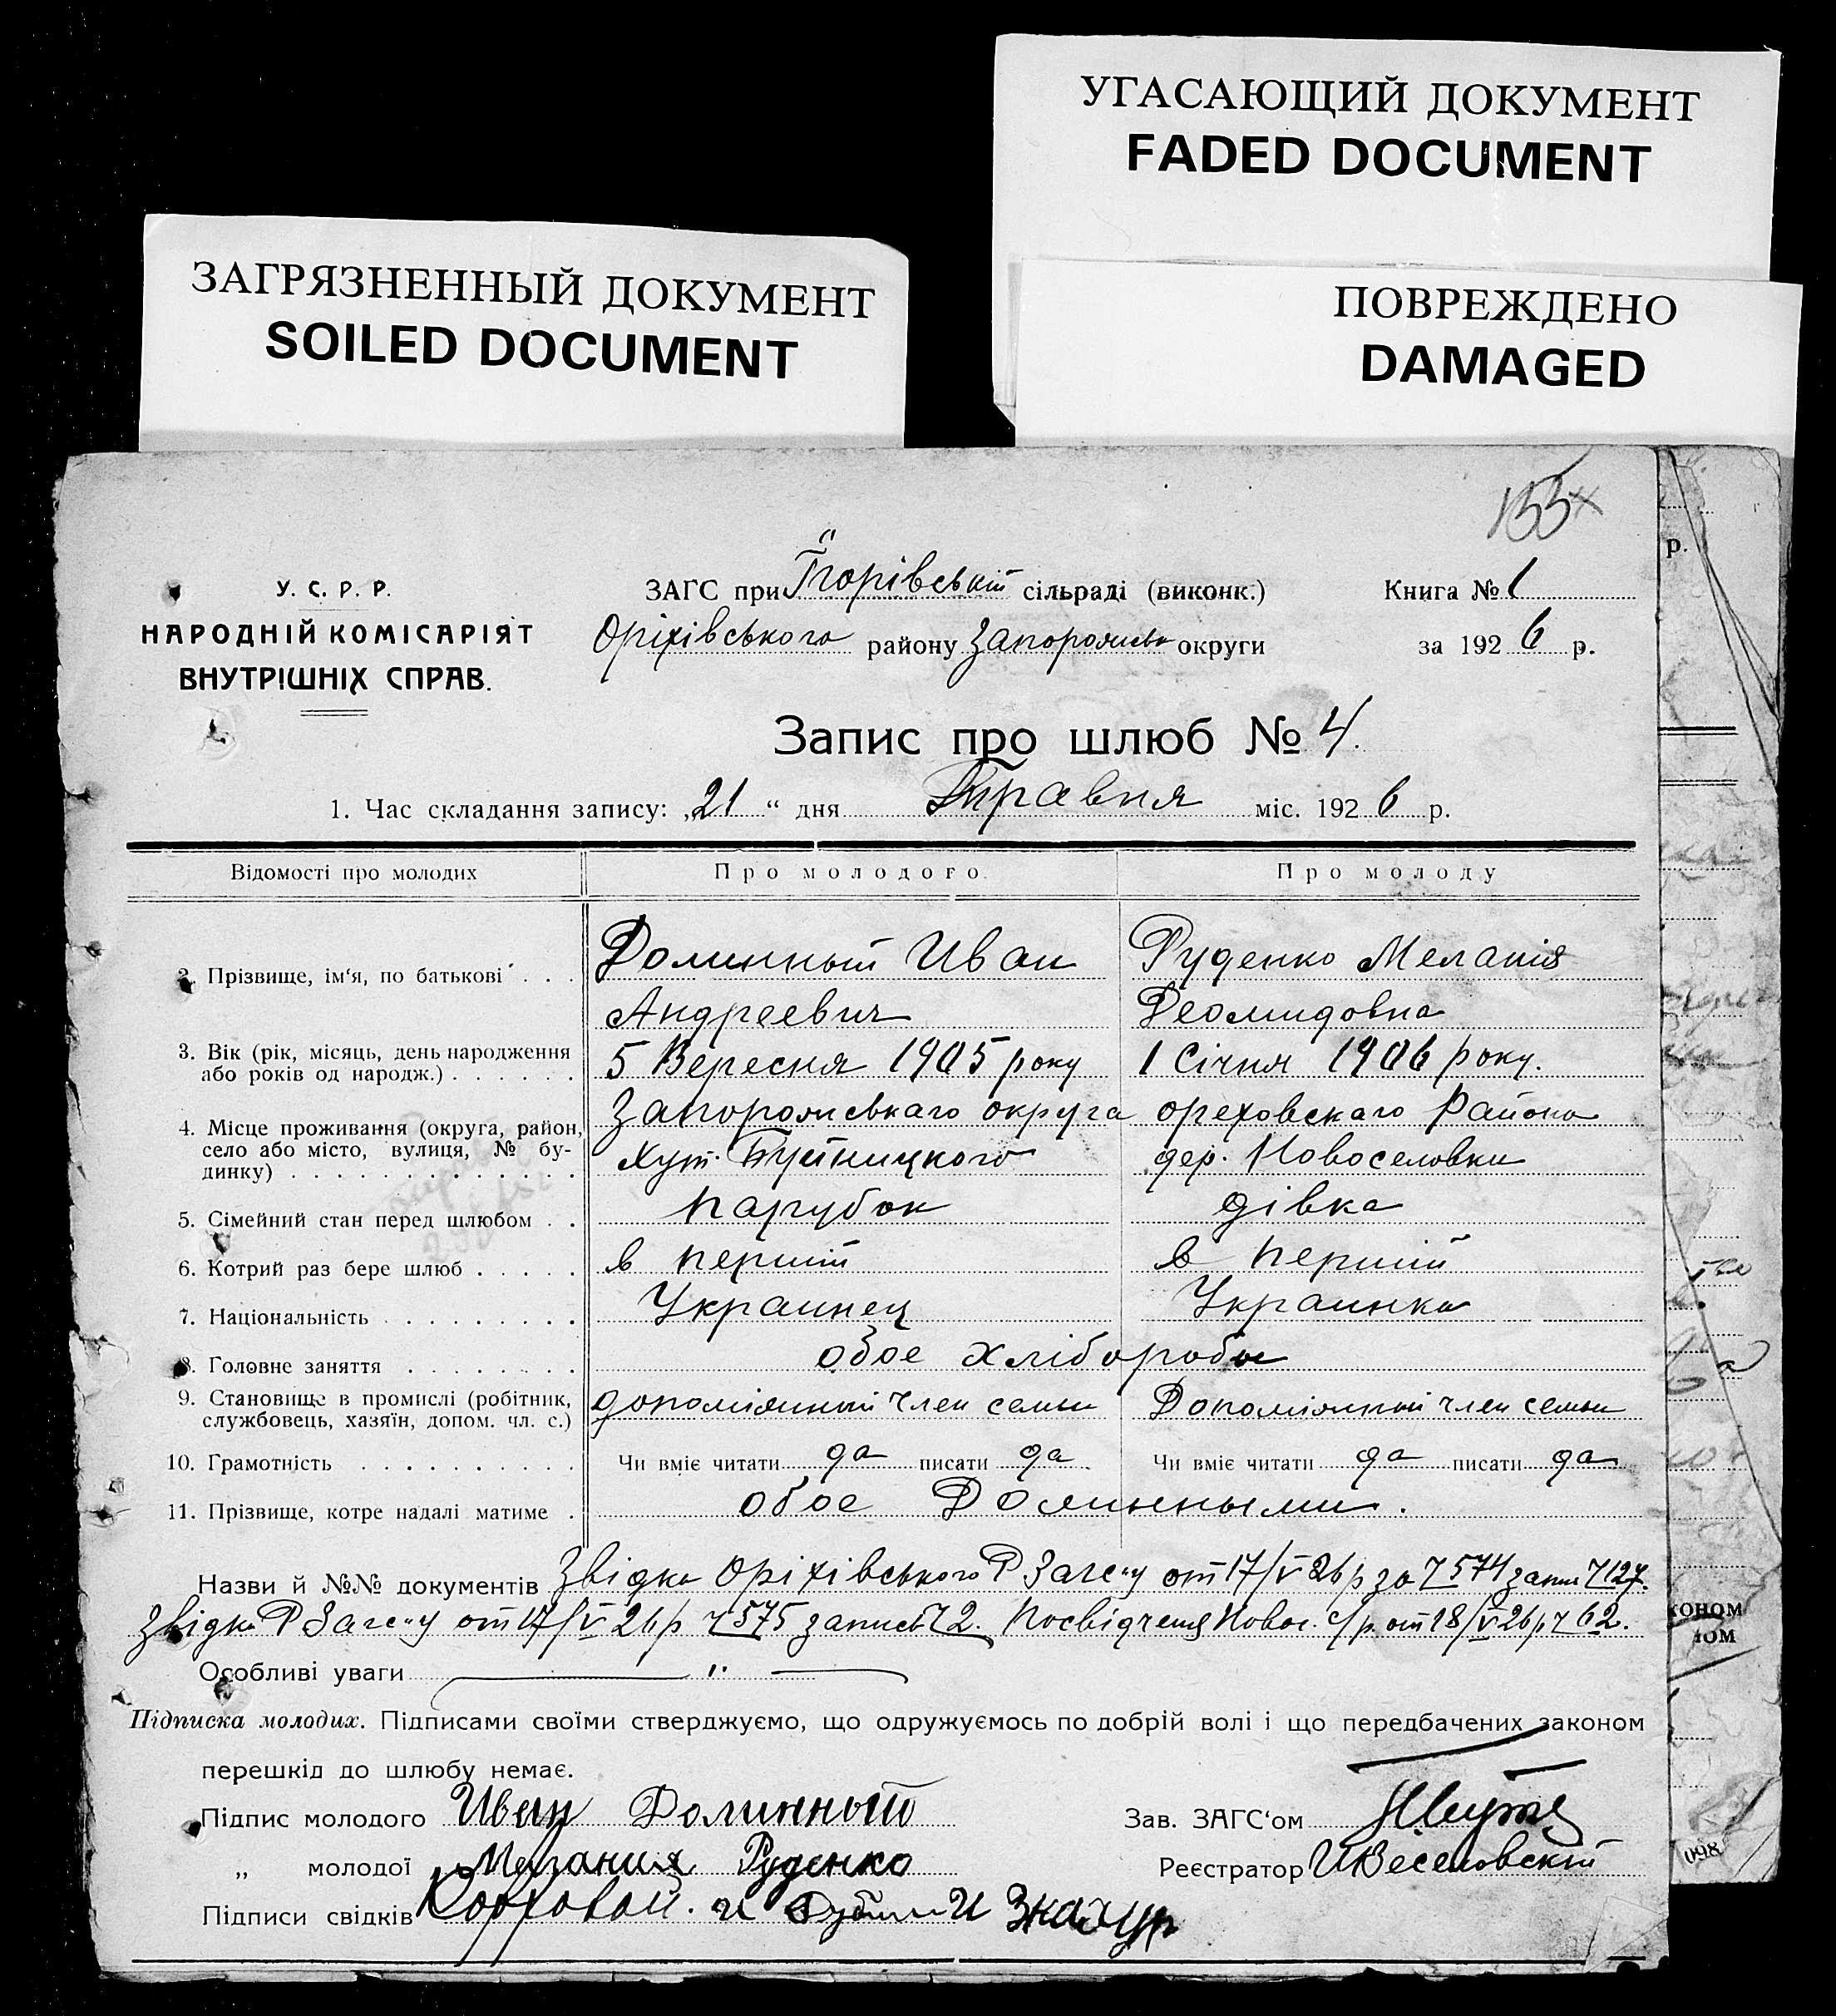 УГАСАЮЩИЙ ДОКУМЕНТ
FADED DOCUMENT
ЗАГРЯЗНЕННЫЙ ДОКУМЕНТ
SOILED DOCUMENT
ПОВРЕЖДЕНО
DAMAGED
У. С. Р. Р.
НАРОДНІЙ КОМІСАРІЯТ
ВНУТРІШНІХ СПРАВ.
ЗАГС при сільраді (виконк.) Книга № 1
Оріхівського району Запорожськ округи за 1926 р.
Запис про шлюб № 4.
1. Час складання запису: „21“ дня Травня міс. 1926 р.
Відомості про молодих Про молодого Про молоду
2. Прізвище, ім'я, по батькові . . . Долинный Иван Руденко Меланія
Андреевич Деомидовна
3. Вік (рік, місяць, день народження або років од народж.) . . . . . . 5 Вересня 1905 року 1 Січня 1906 року.
4. Місце проживання (округа, район, село або місто, вулиця, № будинку) . . . . . . Запорожськаго округа ореховскаго Района
хут. дер. Новоселовки
5. Сімейний стан перед шлюбом . . парубок дівка
6. Котрий раз бере шлюб . . . . . в перший в перший
7. Національність . . . . . . . . . Украинец Украинка
8. Головне заняття . . . . . . . обое хлібороби
9. Становище в промислі (робітник, службовець, хазяїн, допом. чл. с.) допоміжный член семьи Допоміжный член семьи
10. Грамотність . . . . . . . . . . Чи вміє читати да писати да Чи вміє читати да писати да
11. Прізвище, котре надалі матиме . обое Долинными.
Назви й №№ документів Звідка Оріхівського Р Загсу от 17/V 26 р за ч 574 запис ч 127.
Звідка Р Загсу от 17/V 26 р ч 575 запись ч 2. Посвідченя Новос. с/р. от 18/V 26 р ч 62.
Особливі уваги — " —
Підписка молодих. Підписами своїми стверджуємо, що одружуємось по добрій волі і що передбачених законом
перешкід до шлюбу немає.
Підпис молодого Иван Долинный Зав. ЗАГС'ом
„ молодої Мелания Руденко Реєстратор И Веселовский
Підписи свідків